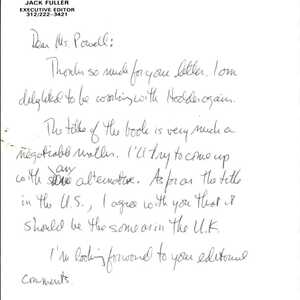 JACK FULLER
EXECUTIVE EDITOR
312/222-3421
Dear Ms. Powell:
Thanks so much for your letter. I am
delighted to be working with Hodder again.
The title of the book is very much a
negotiable matter. I'll try to come up
with an alternative. As far as the title
in the U.S., I agree with you that it
should be the same as in the U.K.
I'm looking forward to your editorial
comments.